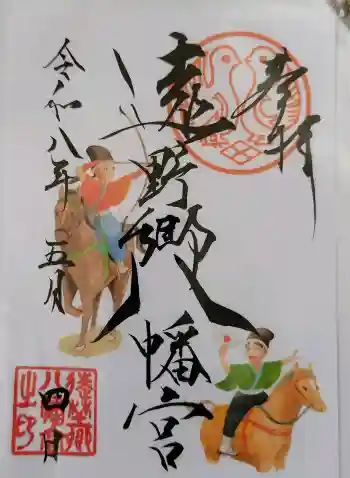 奉拝
遠野郷八幡宮
令和八年五月
四日
遠野郷
八幡宮
之印